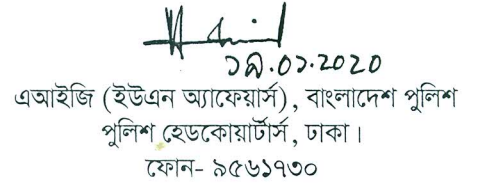 ১৯.০১.২০২০
এআইজি (ইউএন অ্যাফেয়ার্স), বাংলাদেশ পুলিশ
পুলিশ হেডকোয়ার্টার্স, ঢাকা।
ফোন- ৯৫৬১৭৩০